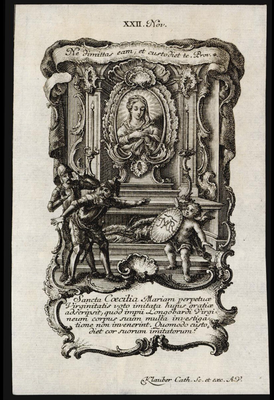 XXII. Nov.
Ne dimittas eam, et custodiet te. Prov. 4.
Sancta Cæcilia Mariam perpetuæ
Virginitatis voto imitata hujus gratiæ
adscripsit, quod impii Longobardi Virgi-
neum corpus suum multa investiga-
tione non invenerint. Quomodo custo-
diet cor suorum imitatorum?
Klauber Cath. Sc. et exc. A.V.